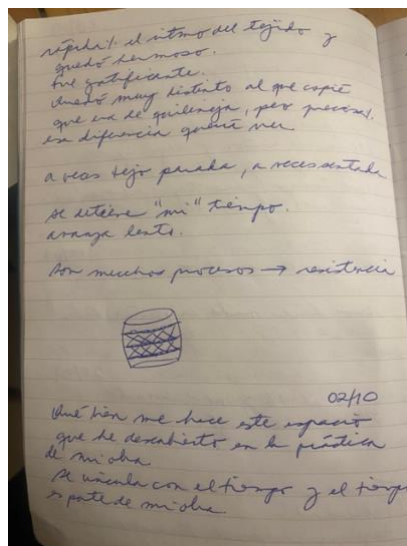 rápida/. el ritmo del tejido y
quedó hermoso.
fue gratificante.
Quedó muy distinto al que copié
que era de quilineja, pero precisa/.
esa diferencia quería ver
a veces tejo parada, a veces sentada
se detiene "mi" tiempo.
avanza lento.
son muchos procesos → resistencia
02/10
Qué bien me hace este espacio
que he descubierto en la práctica
de mi obra
se vincula con el tiempo y el tiempo
es parte de mi obra.